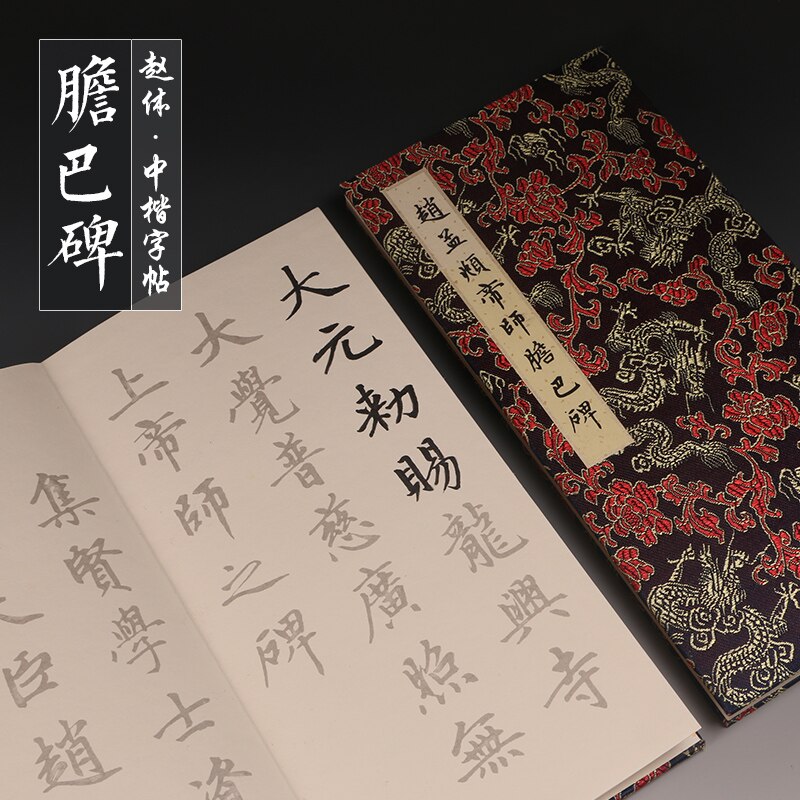 膽巴碑
赵体·中楷字帖
趙孟頫帝師膽巴碑
大元勅賜龍興寺
大覺普慈廣照無
上帝師之碑
集賢學士資
大臣趙